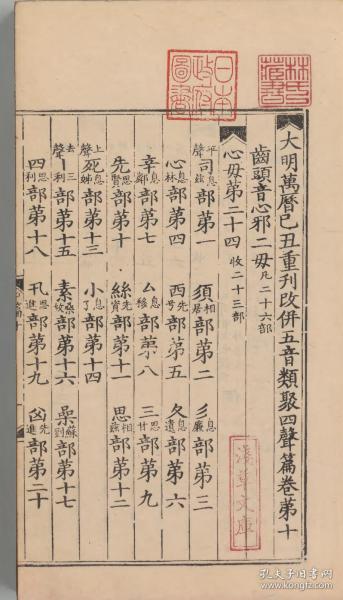 大明萬曆己丑重刋改併五音類聚四聲篇卷第十
齒頭音心邪二毋凡二十六部
心毋第二十四收二十三部
平聲司息兹部第一 須相居部第二 彡息廉部第三
心息林部第四 西先兮部第五 夊息遺部第六
辛息鄰部第七 厶息移部第八 三思甘部第九
先思賢部第十 絲先賫部第十一 思相兹部第十二
上聲死息姊部第十三 小息了部第十四
去聲三利部第十五 素桑故部第十六 喿蘇到部第十七
四思利部第十八 卂思進部第十九 囟先進部第二十
林氏藏書
日本政府圖書
淺草文庫
孔夫子旧书网